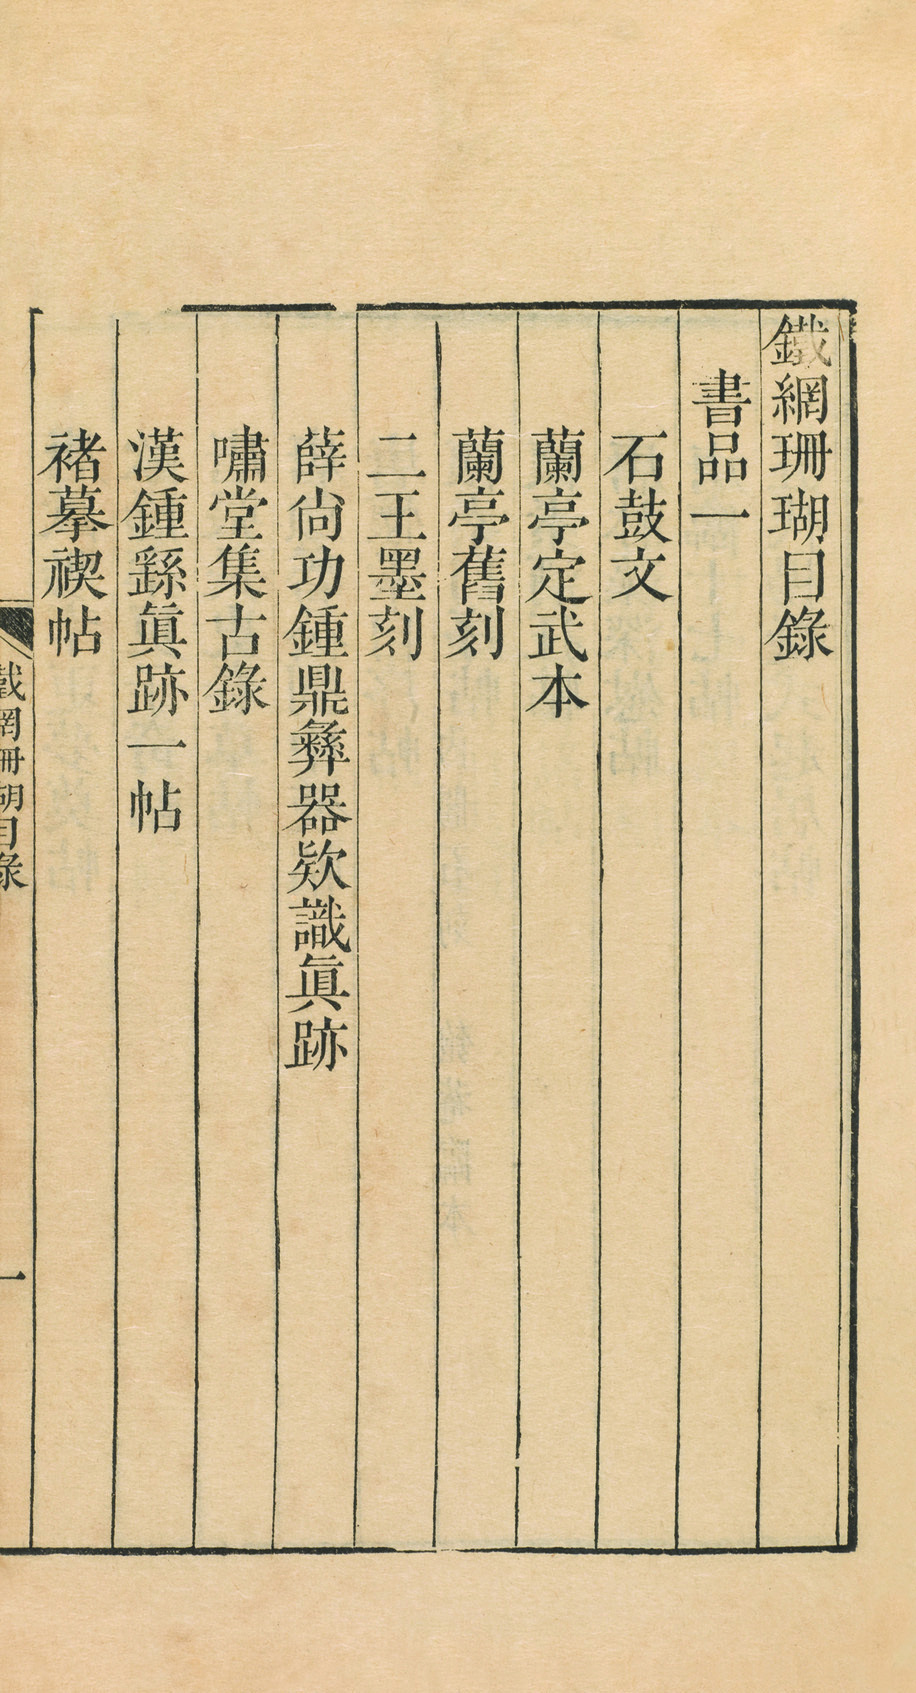 鐵網珊瑚目錄
書品一
石鼓文
蘭亭定武本
蘭亭舊刻
二王墨刻
薛尙功鍾鼎彝器欵識眞跡
嘯堂集古錄
漢鍾繇眞跡一帖
褚摹禊帖
鐵網珊瑚目錄
一